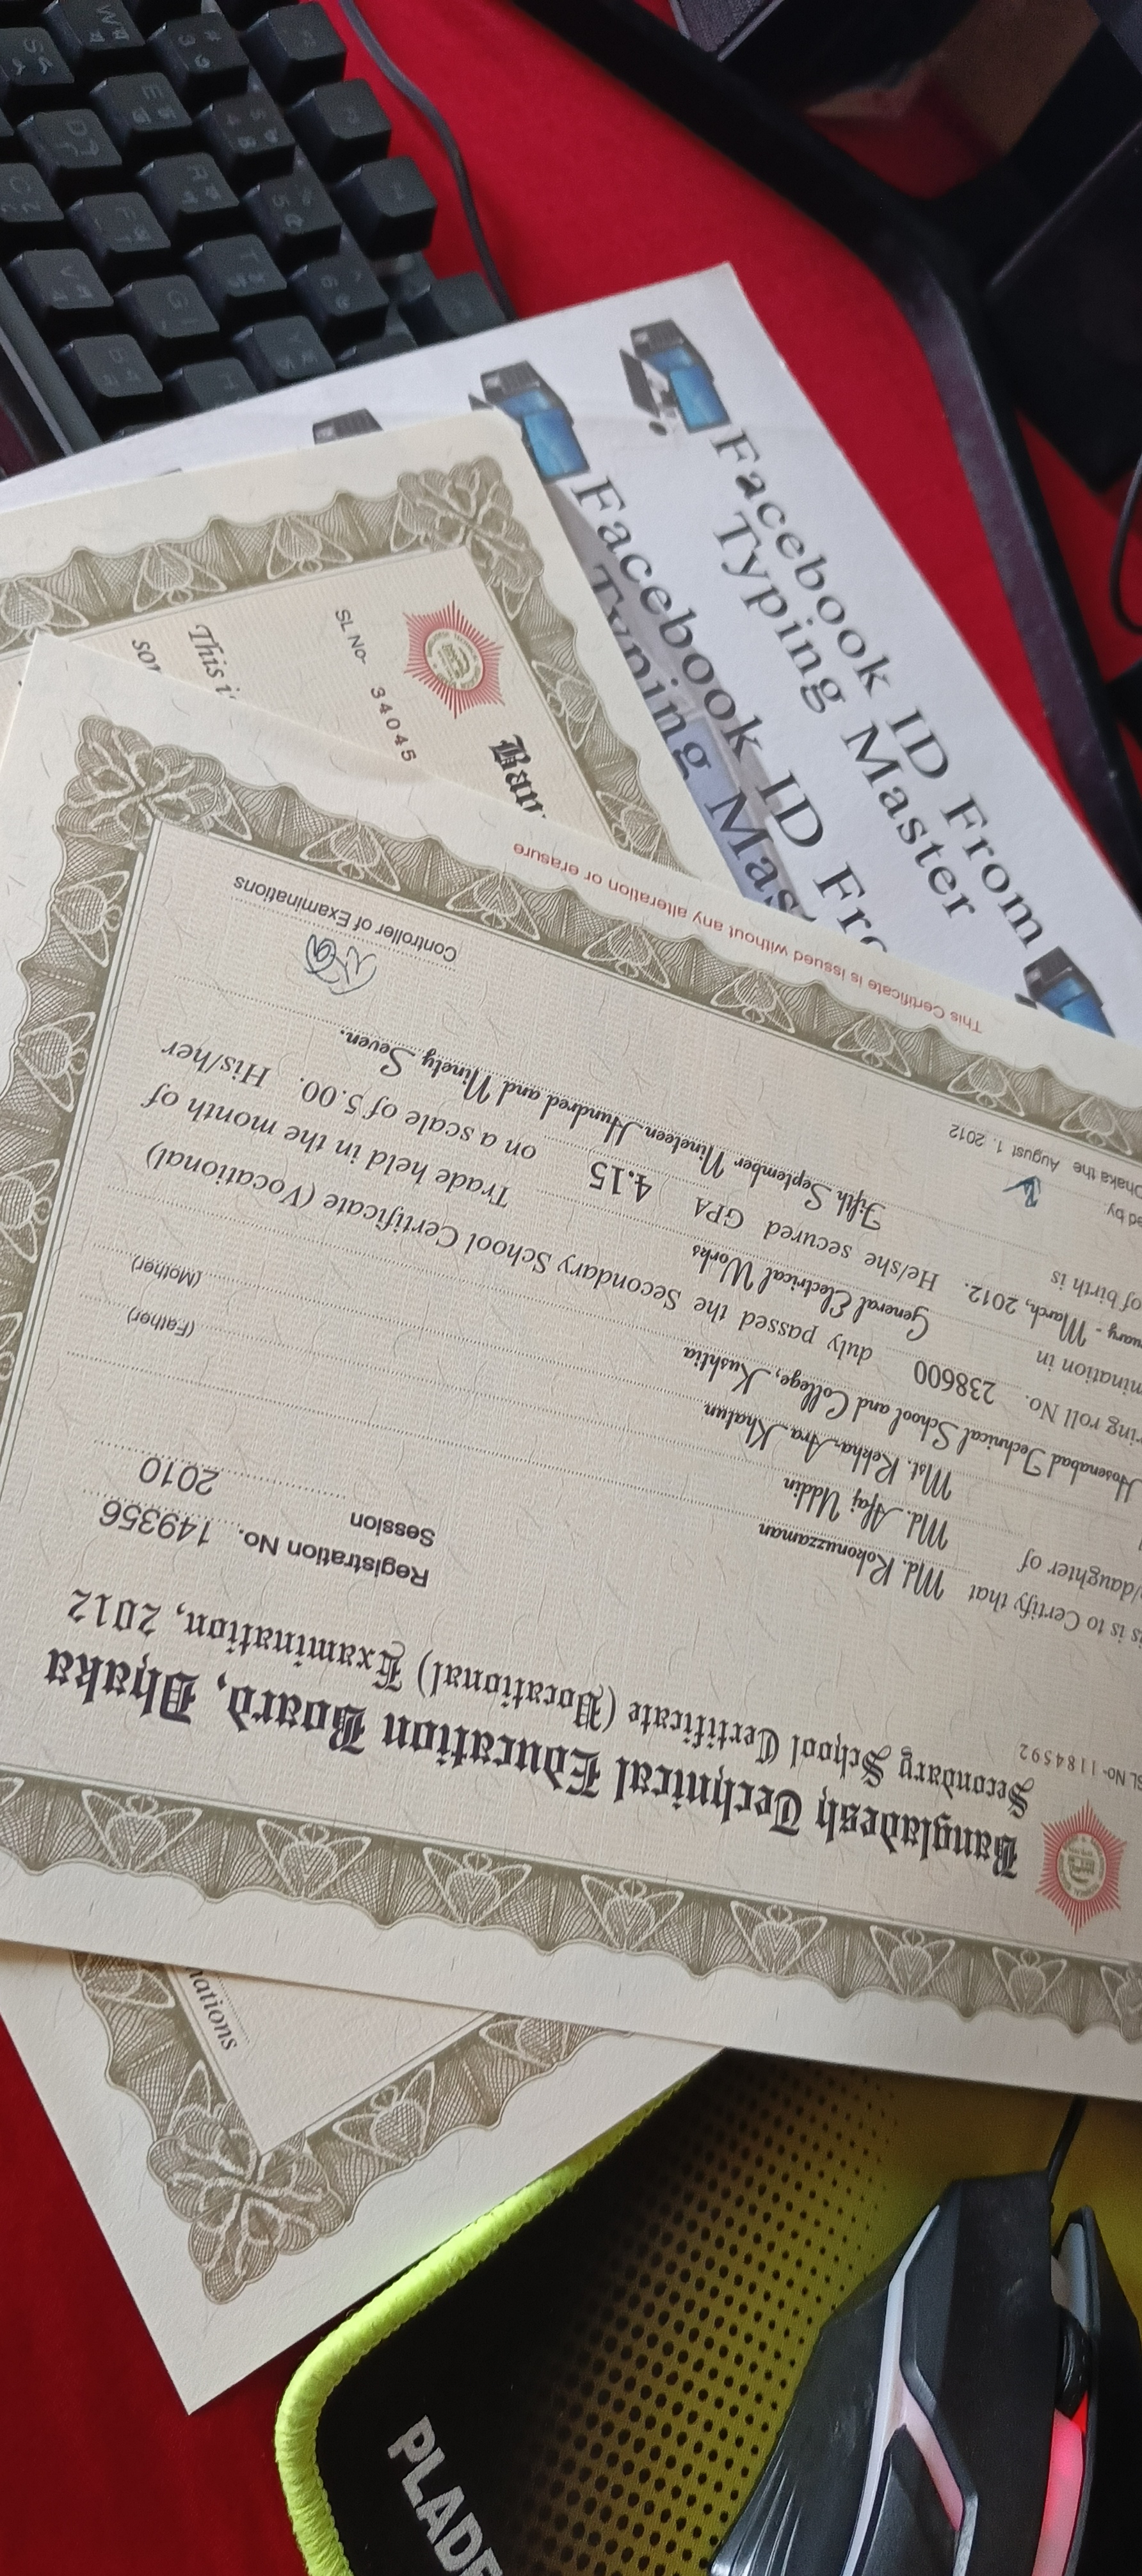 Facebook ID From
Typing Master
Facebook ID Fro
Typing Mas
Ban
SL No- 34045
This i
son
Bangladesh Technical Education Board, Dhaka
Secondary School Certificate (Vocational) Examination, 2012
SL No-1184592
Registration No. 149356
Session 2010
is is to Certify that Md. Rokonuzzaman
/daughter of Md. Afaj Uddin (Father)
Mst. Rekha Ara Khatun (Mother)
Hosenabad Technical School and College, Kushtia
ring roll No. 238600 duly passed the Secondary School Certificate (Vocational)
mination in General Electrical Works Trade held in the month of
uary - March, 2012. He/she secured GPA 4.15 on a scale of 5.00. His/her
of birth is Fifth September Nineteen Hundred and Ninety Seven.
ed by
Dhaka the August 1, 2012
Controller of Examinations
This Certificate is issued without any alteration or erasure
nations
PLADE